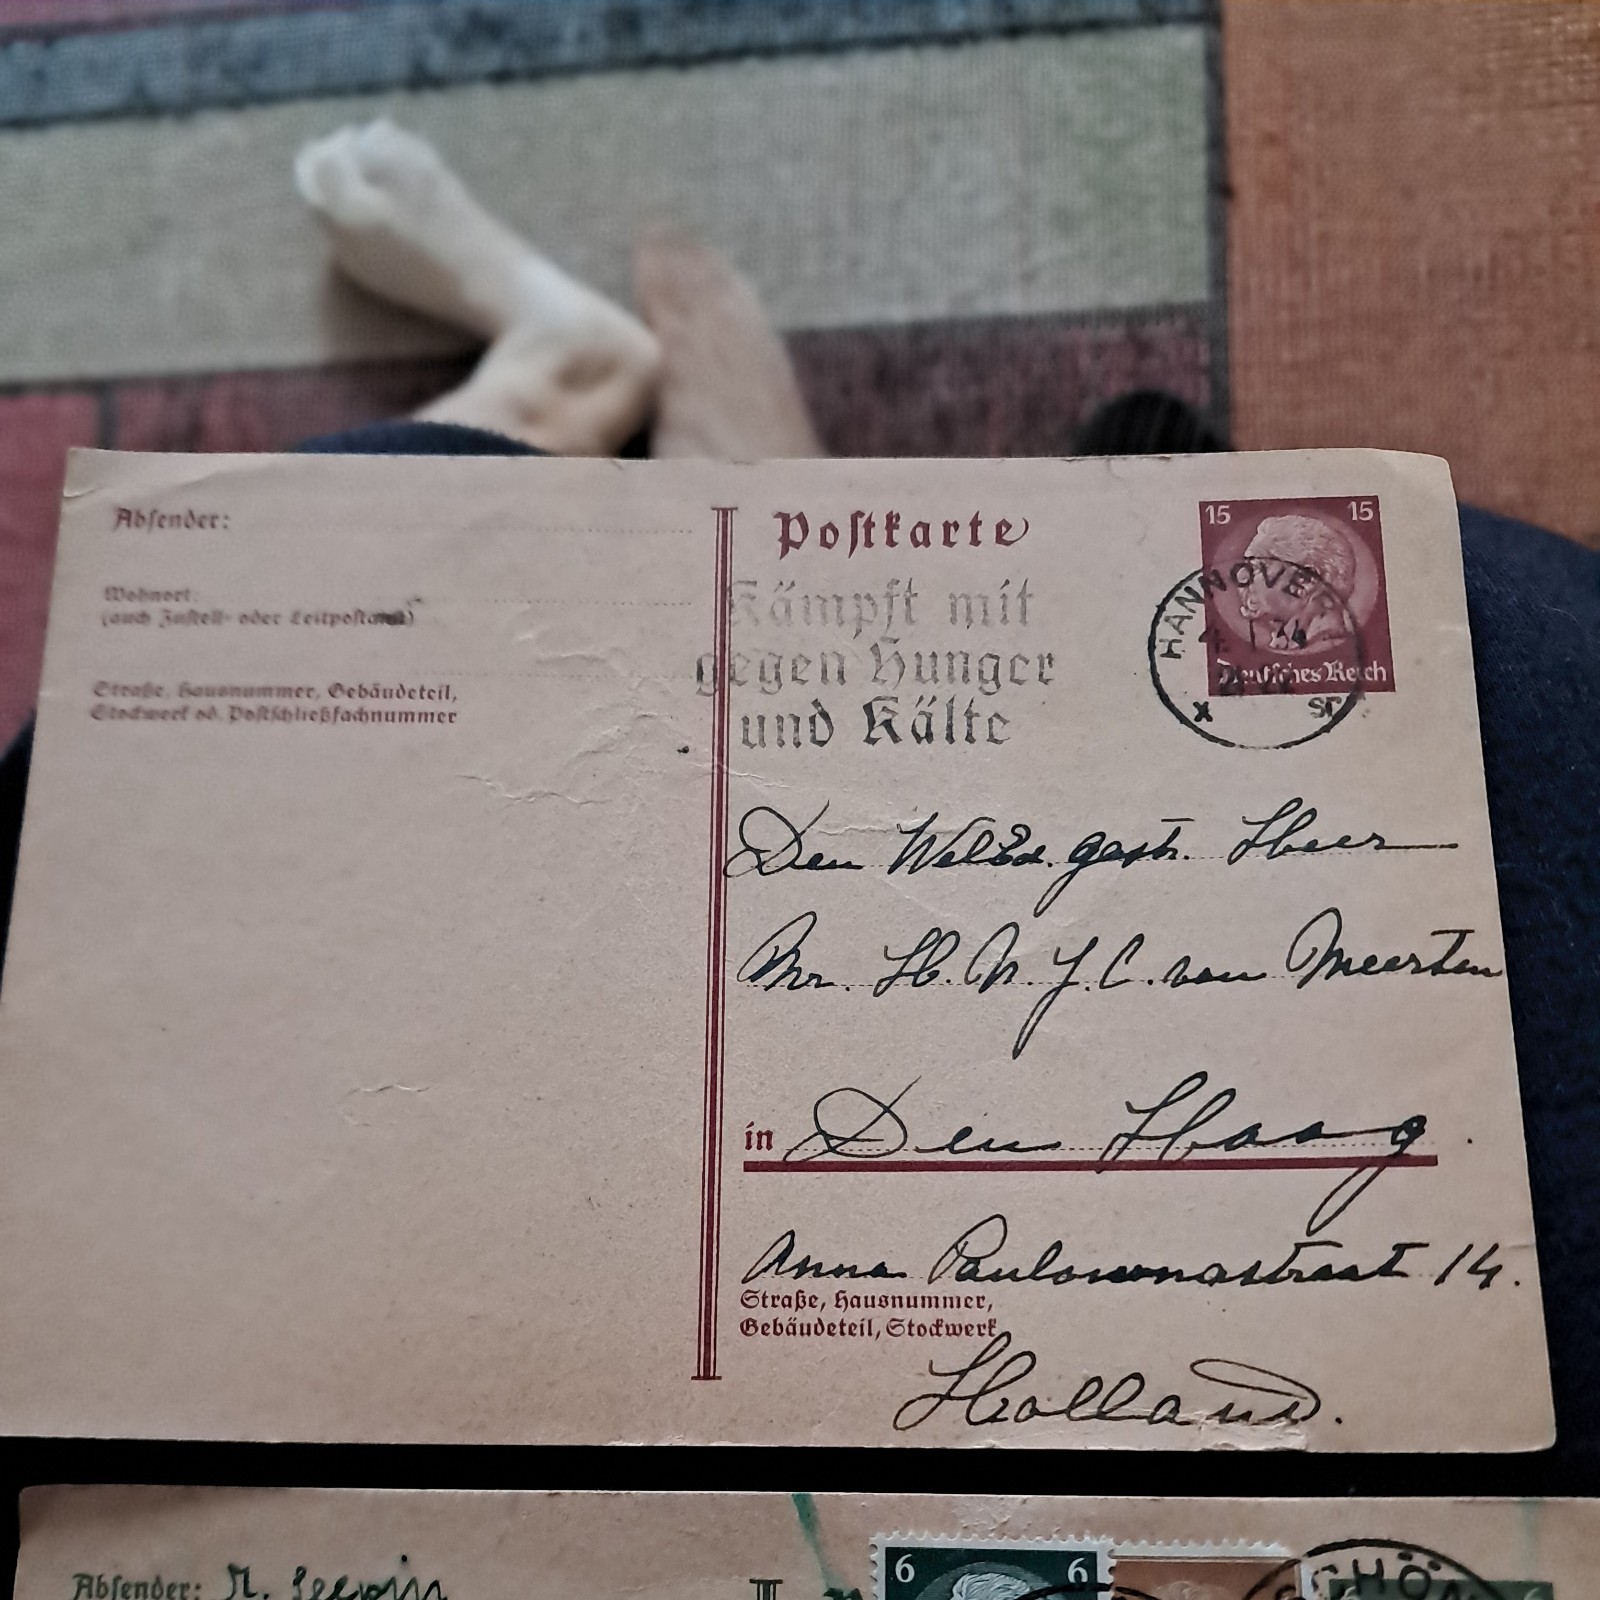 Absender:
Wohnort:
(auch Zustell- oder Leitpostamt)
Straße, Hausnummer, Gebäudeteil,
Stockwerk od. Postschließfachnummer
Postkarte
Kämpft mit
gegen Hunger
und Kälte
15 15
Deutsches Reich
HANNOVER
34
Den WelEd. gestr. Heer
Mr. H. N. J. C. van Meerten
in Den Haag.
Anna Paulownastraat 14.
Straße, Hausnummer,
Gebäudeteil, Stockwerk
Holland.
Absender:
6 6